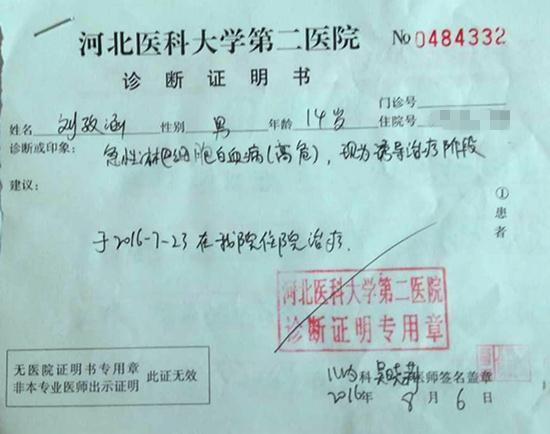 河北医科大学第二医院 No 0484332
诊断证明书
门诊号
姓名 刘孜涵 性别 男 年龄 14岁 住院号
诊断或印象: 急性淋巴细胞白血病(高危),现为诱导治疗阶段
建议:
①患者
于2016-7-23在我院住院治疗.
河北医科大学第二医院
诊断证明专用章
无医院证明书专用章
非本专业医师出示证明
此证无效
科 医师签名盖章
2016年 8月 6日